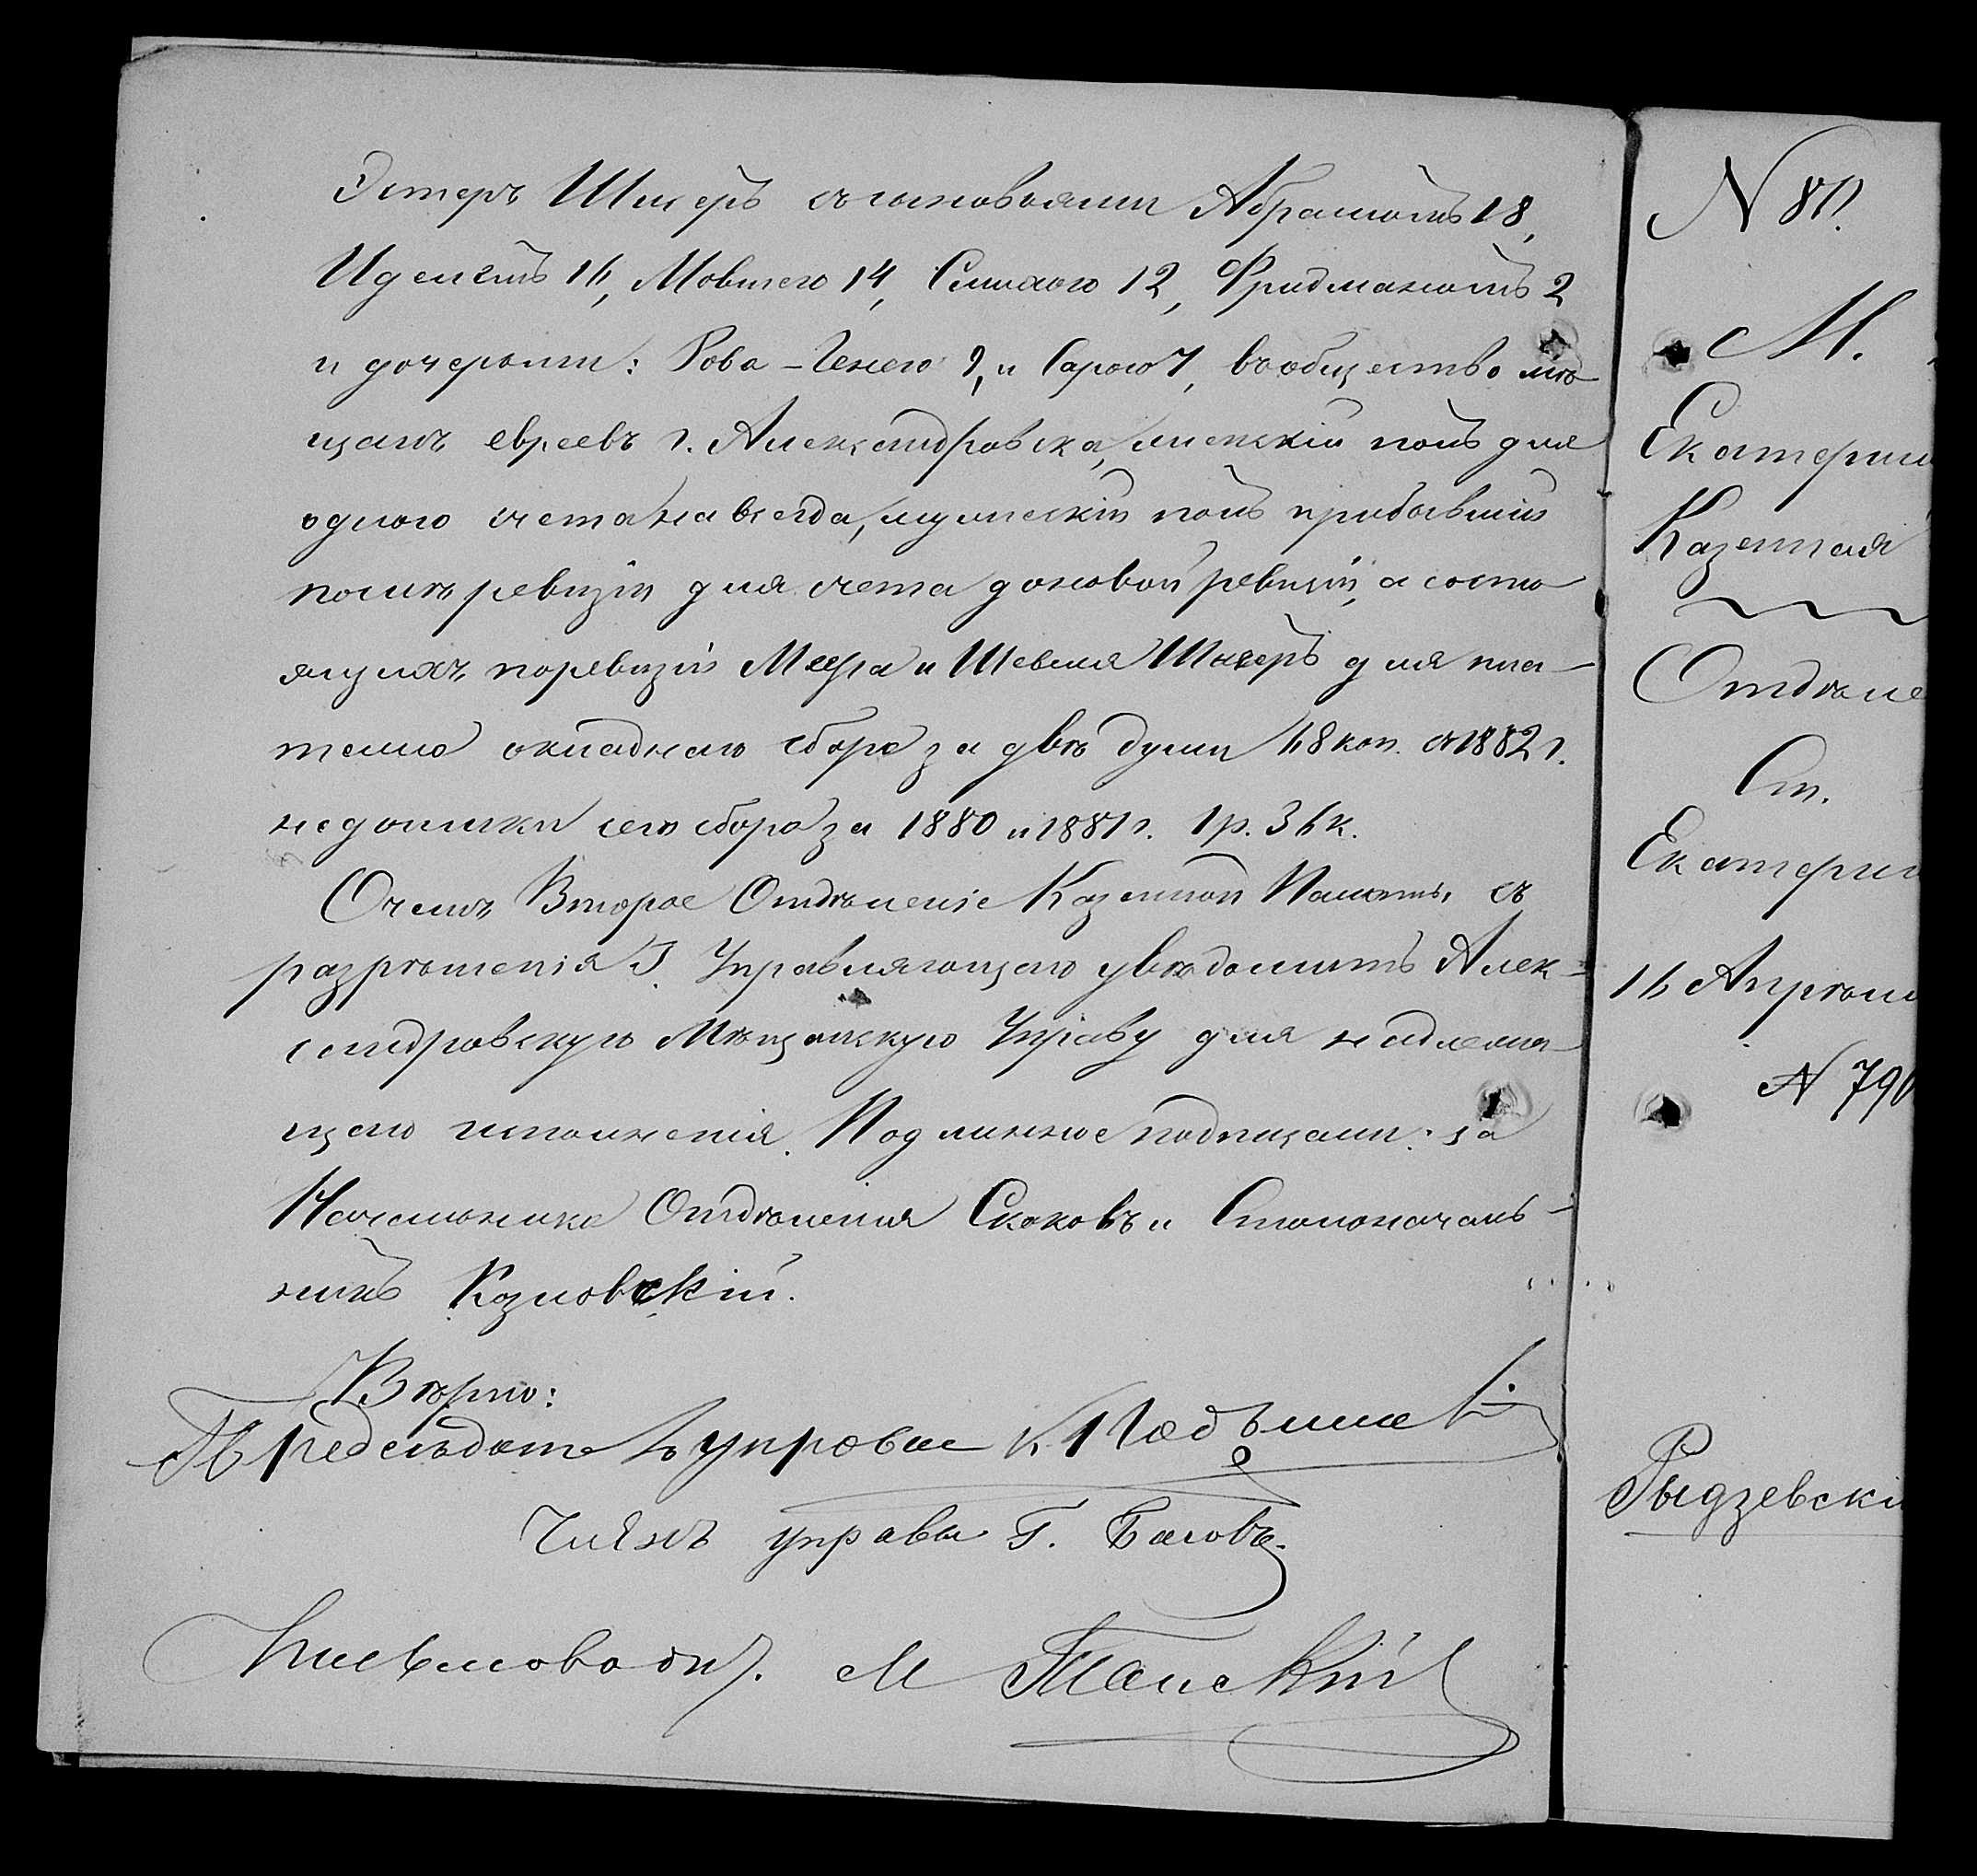 Эстеръ Шнеръ съ сыновьями Абрамомъ 18,
Иделемъ 16, Мовшею 14, Симхою 12, Фридманомъ 2
и дочерьми: Рова-Генею 9, и Сарою 7, въ общество мѣ-
щанъ евреевъ г. Александровска, женскій полъ для
одного счета навсегда, мужескій полъ прибывшій
послѣ ревизіи для счета до новой ревизіи, а состо
ящихъ по ревизіи Меера и Шевеля Шнеръ для пла-
тежа окладнаго сбора за двѣ души 68 коп. съ 1882 г.
недоимки сего сбора за 1880 и 1881 г. 1 р. 36 к.
О чемъ Второе Отдѣленіе Казенной Палаты, съ
разрѣшенія Г. Управляющаго увѣдомитъ Алек-
сандровскую Мѣщанскую Управу для надлежа-
щаго исполненія. Подлинное подписали: за
Начальника Отдѣленія Скоковъ и Столоначаль-
никъ Козловскій.
Вѣрно:
Предсѣдатель управы К.
Членъ управы Г. Басовъ.
Письмовод. М Танскій
N 80.
М.
Екатерин
Казенная
Отдѣле
Ст.
Екатерин
16 Апрѣл
N 790
Рыдзевскі